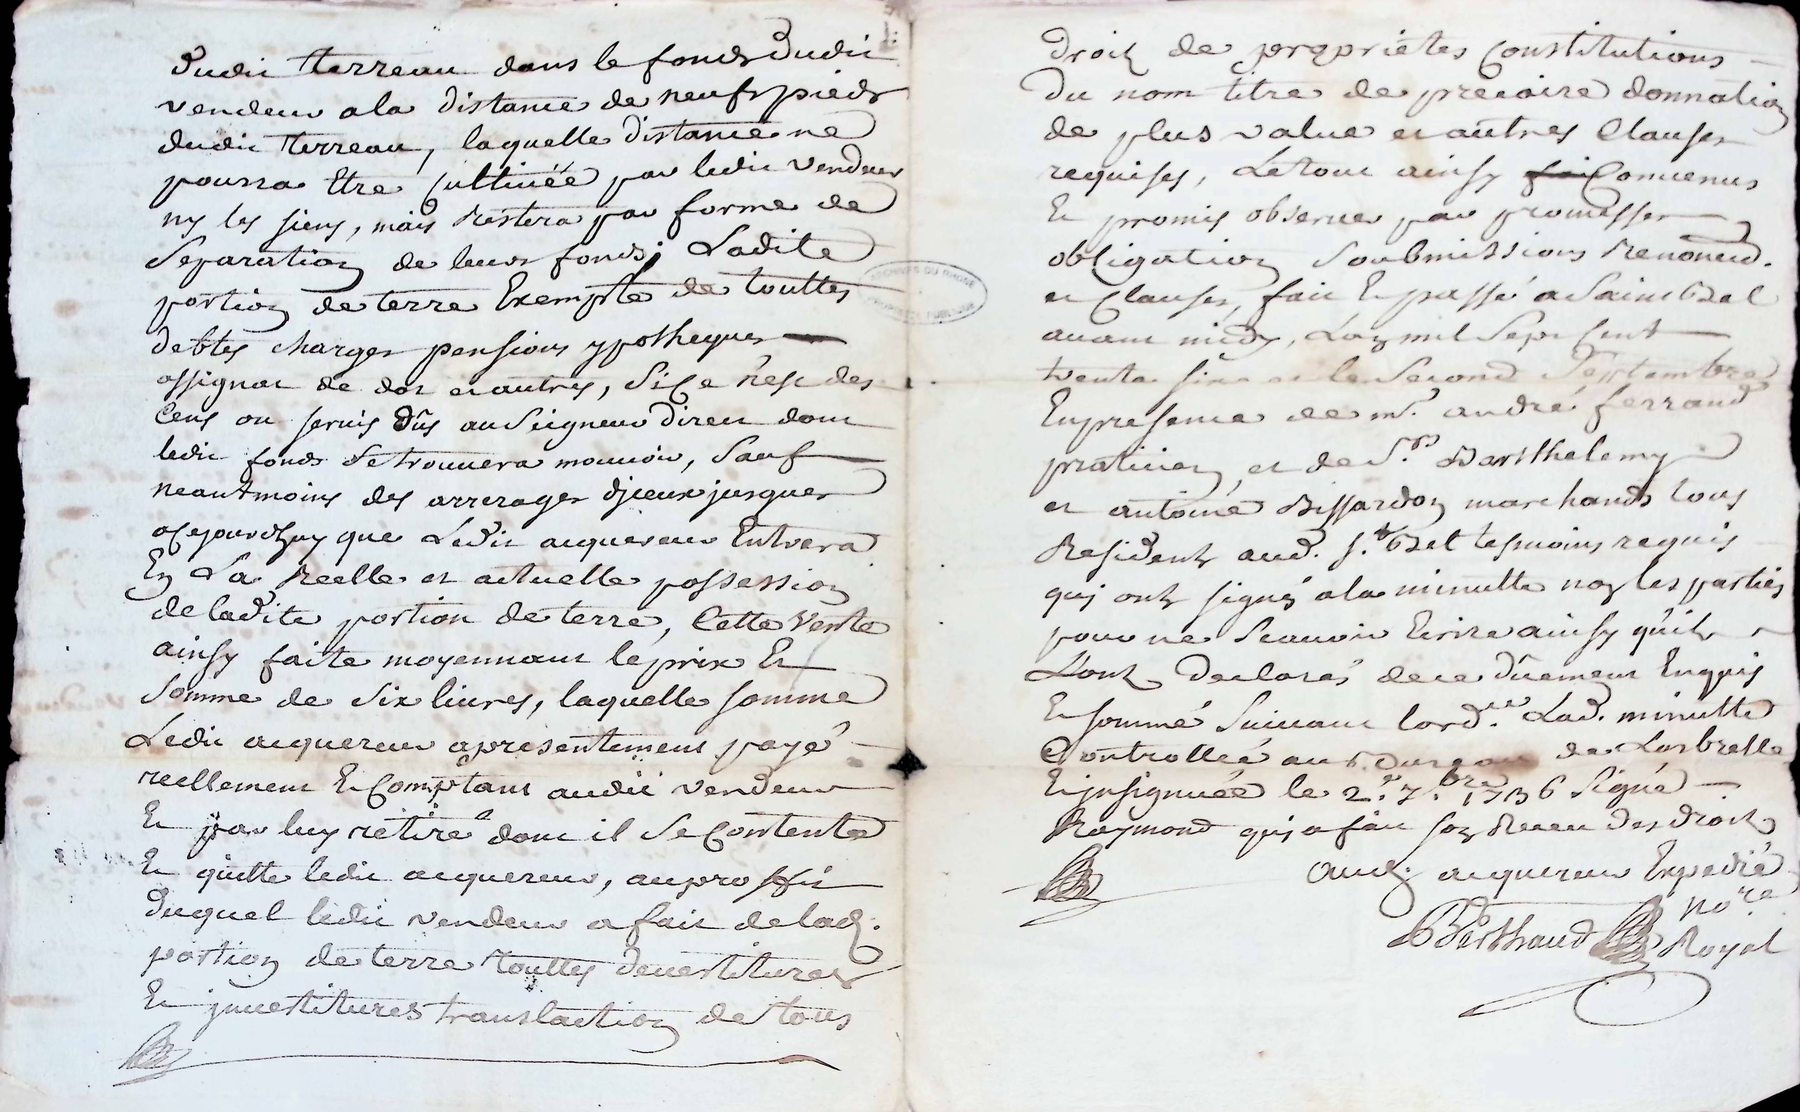 dudit terreau dans le fonds dudit
vendeur a la distance de neufs pieds
dudit terreau, laquelle distance ne
pourra Etre cultivéé par ledit vendeur
ny les siens, mais Restera par forme de
Separation de leurs fonds; Ladite
portion de terre Exempte de touttes
debtes charges pensions ypotheques
assignat de dot et autres, Si Ce n'est des
Cens ou servis dûs au Seigneur direct dont
ledit fonds Se trouvera mouvoir, Sauf
neantmoins des arrerages d'jceux jusques
a Cejourdhuy que Ledit acquereur Entrera
En La Reelle et actuelle possession
de ladite portion de terre, Cette Vente
ainsy faite moyennant le prix Et
Somme de Six livres, laquelle somme
Ledit acquereur a presentement payé
reellement Et Comptant audit vendeur
Et par luy retiré dont il Se Contente
Et quitte ledit acquereur, au proffit
duquel ledit vendeur a fait de lad.
portion de terre touttes devestitures
Et jnvestitures translaction de tous
droits de proprietes Constitutions
du nom titre de precaire donnation
de plus value et autres Clauses
requises, Le tout ainsy Convenus
Et promis observer par promesses
obligation Soubmissions Renonciâ.
et Clauses, fait Et passé a Saint Bel
avant midy, L'an mil Sept Cent
trente six et le Second Septembre
En presence de mr. andré ferrand
praticien, et de Srs. Barthelemy
et antoine Bissardon marchands tous
Residents aud. St. Bel tesmoins requis
qui ont signés a la minutte non les parties
pour ne Scavoir Ecrire ainsy qu'ils
L'ont declarés de ce dûement Enquis
Et sommé Suivant l'ord.ce Lad. minutte
Controlleé au Bureau de Larbresle
Et jnsignuéé le 2.e 7.bre 1736 Signé
Raymond qui a fait son Receu des droits
aud. acquereur Expedié
BBerthaud no.re
Royal
ARCHIVES DU RHONE